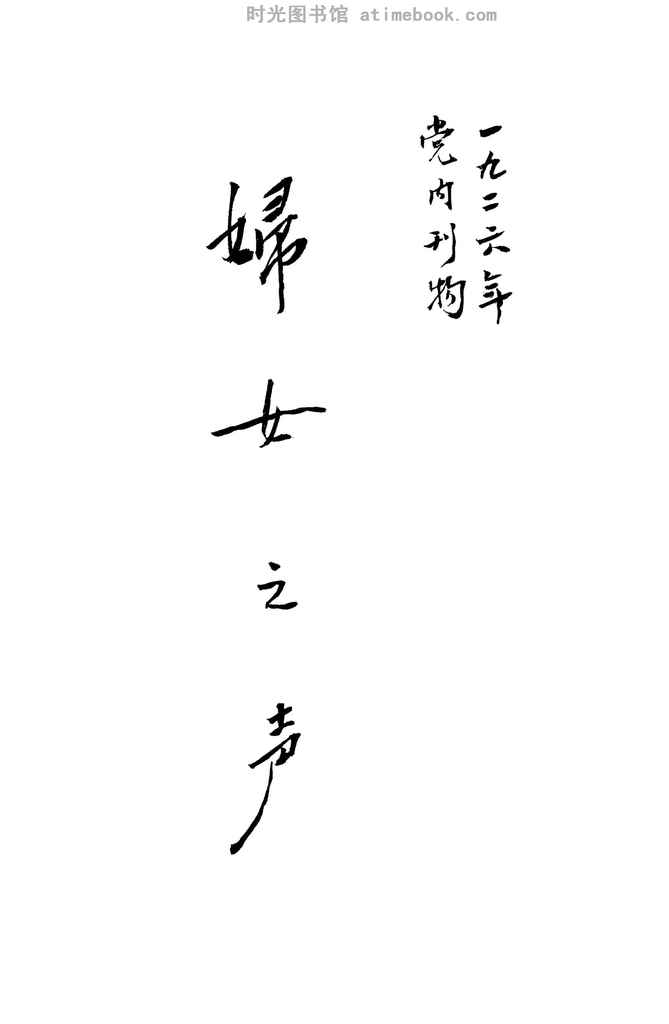 时光图书馆 atimebook.com
一九二六年
党内刊物
婦女之声